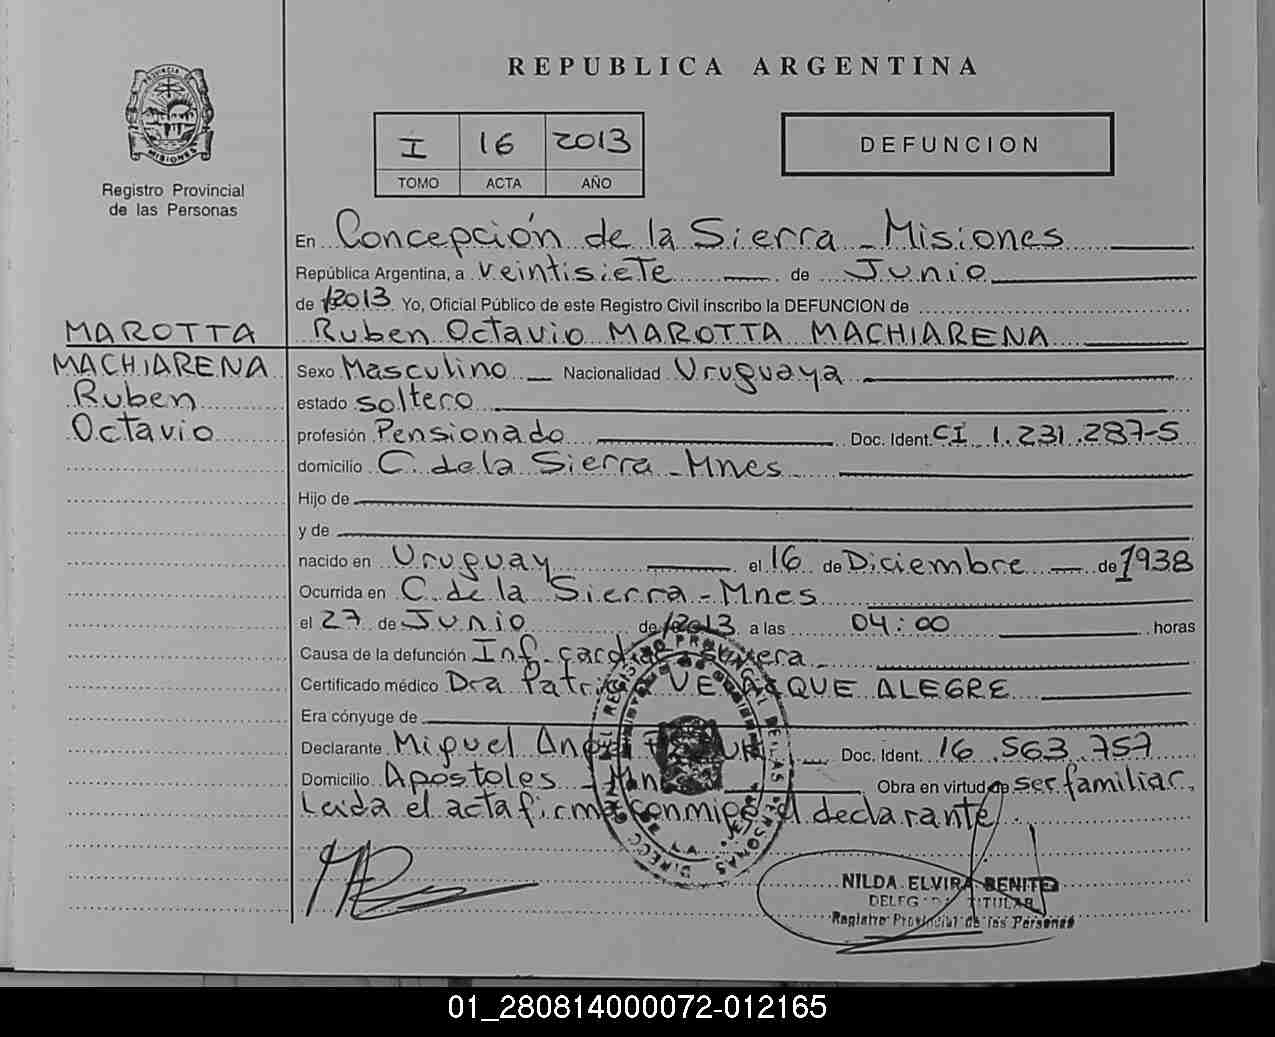 REPUBLICA ARGENTINA
PROVINCIA DE
MISIONES
Registro Provincial
de las Personas
I 16 2013
TOMO ACTA AÑO
DEFUNCION
En Concepción de la Sierra - Misiones
República Argentina, a veintisiete de Junio
de 2013 Yo, Oficial Público de este Registro Civil inscribo la DEFUNCION de
Ruben Octavio MAROTTA MACHIARENA
MAROTTA
MACHIARENA
Ruben
Octavio
Sexo Masculino Nacionalidad Uruguaya
estado soltero
profesión Pensionado Doc. Ident. CI 1.231.287-5
domicilio C. de la Sierra - Mnes
Hijo de
y de
nacido en Uruguay el 16 de Diciembre de 1938
Ocurrida en C. de la Sierra - Mnes
el 27 de Junio de 2013 a las 04:00 horas
Causa de la defunción Inf. severa
Certificado médico Dra ALEGRE
Era cónyuge de
Declarante Miguel Doc. Ident. 16.563.757
Domicilio Apostoles - Obra en virtud de ser familiar.
Leida el acta firma conmigo el declarante
DIRECC. GRAL. DEL REGISTRO PROVINCIAL DE LAS PERSONAS
NILDA ELVIRA BENITEZ
DELEGADA TITULAR
Registro Provincial de las Personas
01_280814000072-012165